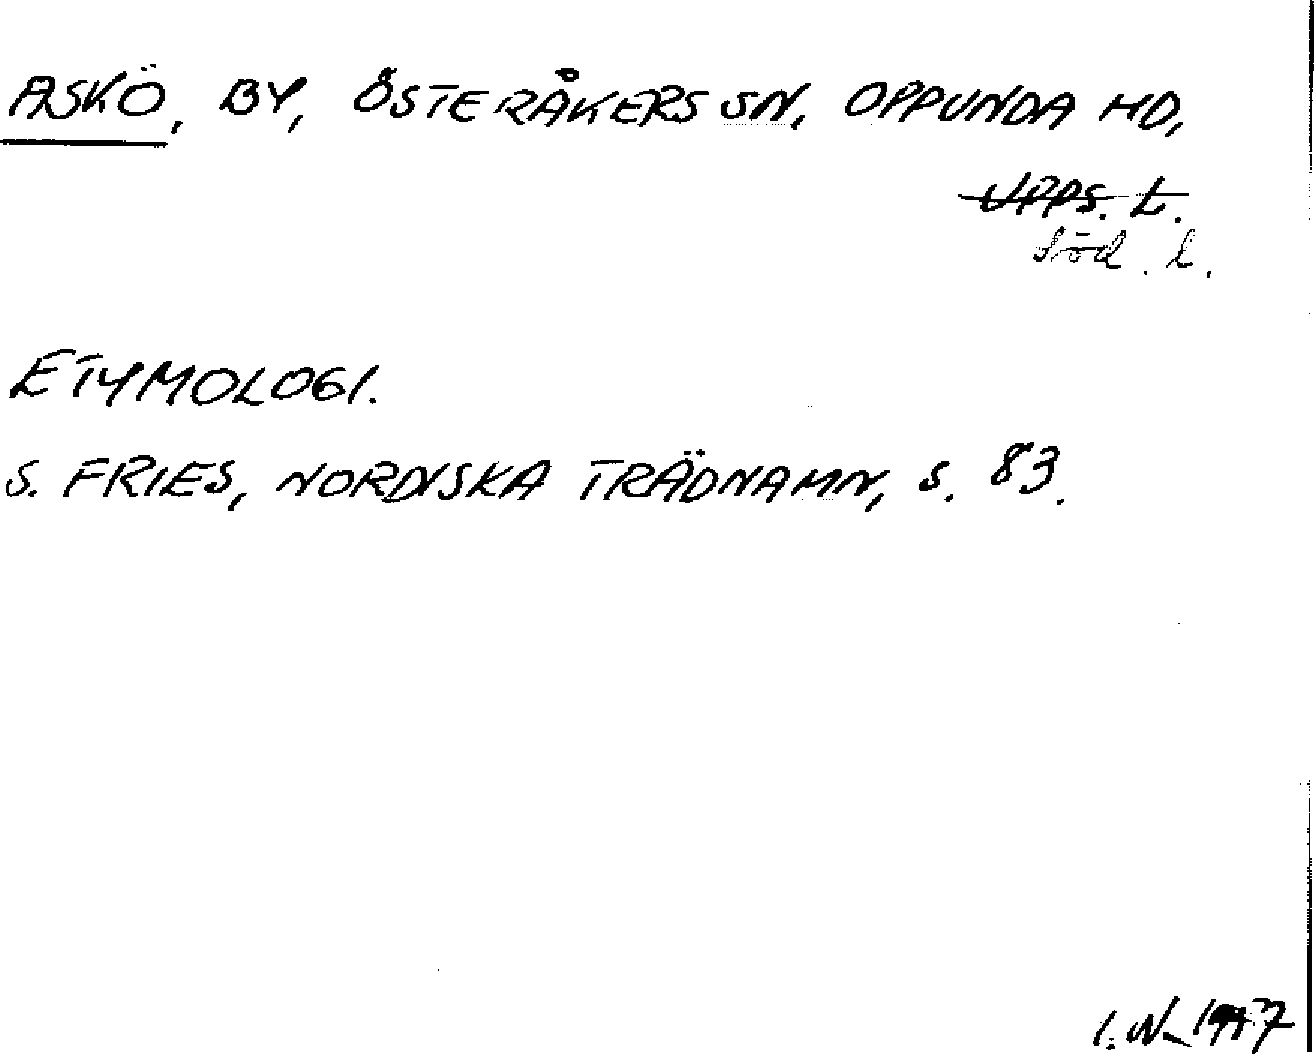 ASKÖ, BY, ÖSTERÅKERS SN, OPPUNDA HD,
UPPS. L.
Söd. l.
ETYMOLOGI.
S. FRIES, NORDISKA TRÄDNAMN, S. 83.
I. N.